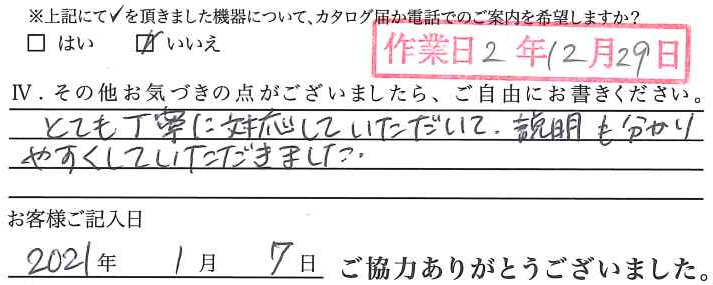 ※上記にて✓を頂きました機器について、カタログ届か電話でのご案内を希望しますか？
□ はい ☑ いいえ
作業日 2 年 12 月 29 日
Ⅳ．その他お気づきの点がございましたら、ご自由にお書きください。
とても丁寧に対応していただいて、説明も分かり
やすくしていただきました。
お客様ご記入日
2021 年 1 月 7 日 ご協力ありがとうございました。